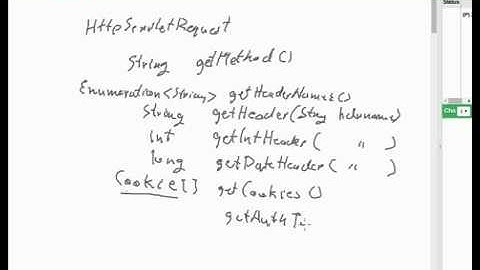 HttpServletRequest
String getMethod()
Enumeration<String> getHeaderNames()
String getHeader(String
int getIntHeader( " )
long getDateHeader( " )
Cookie[] getCookies()
getAuthTi
Status
Cha